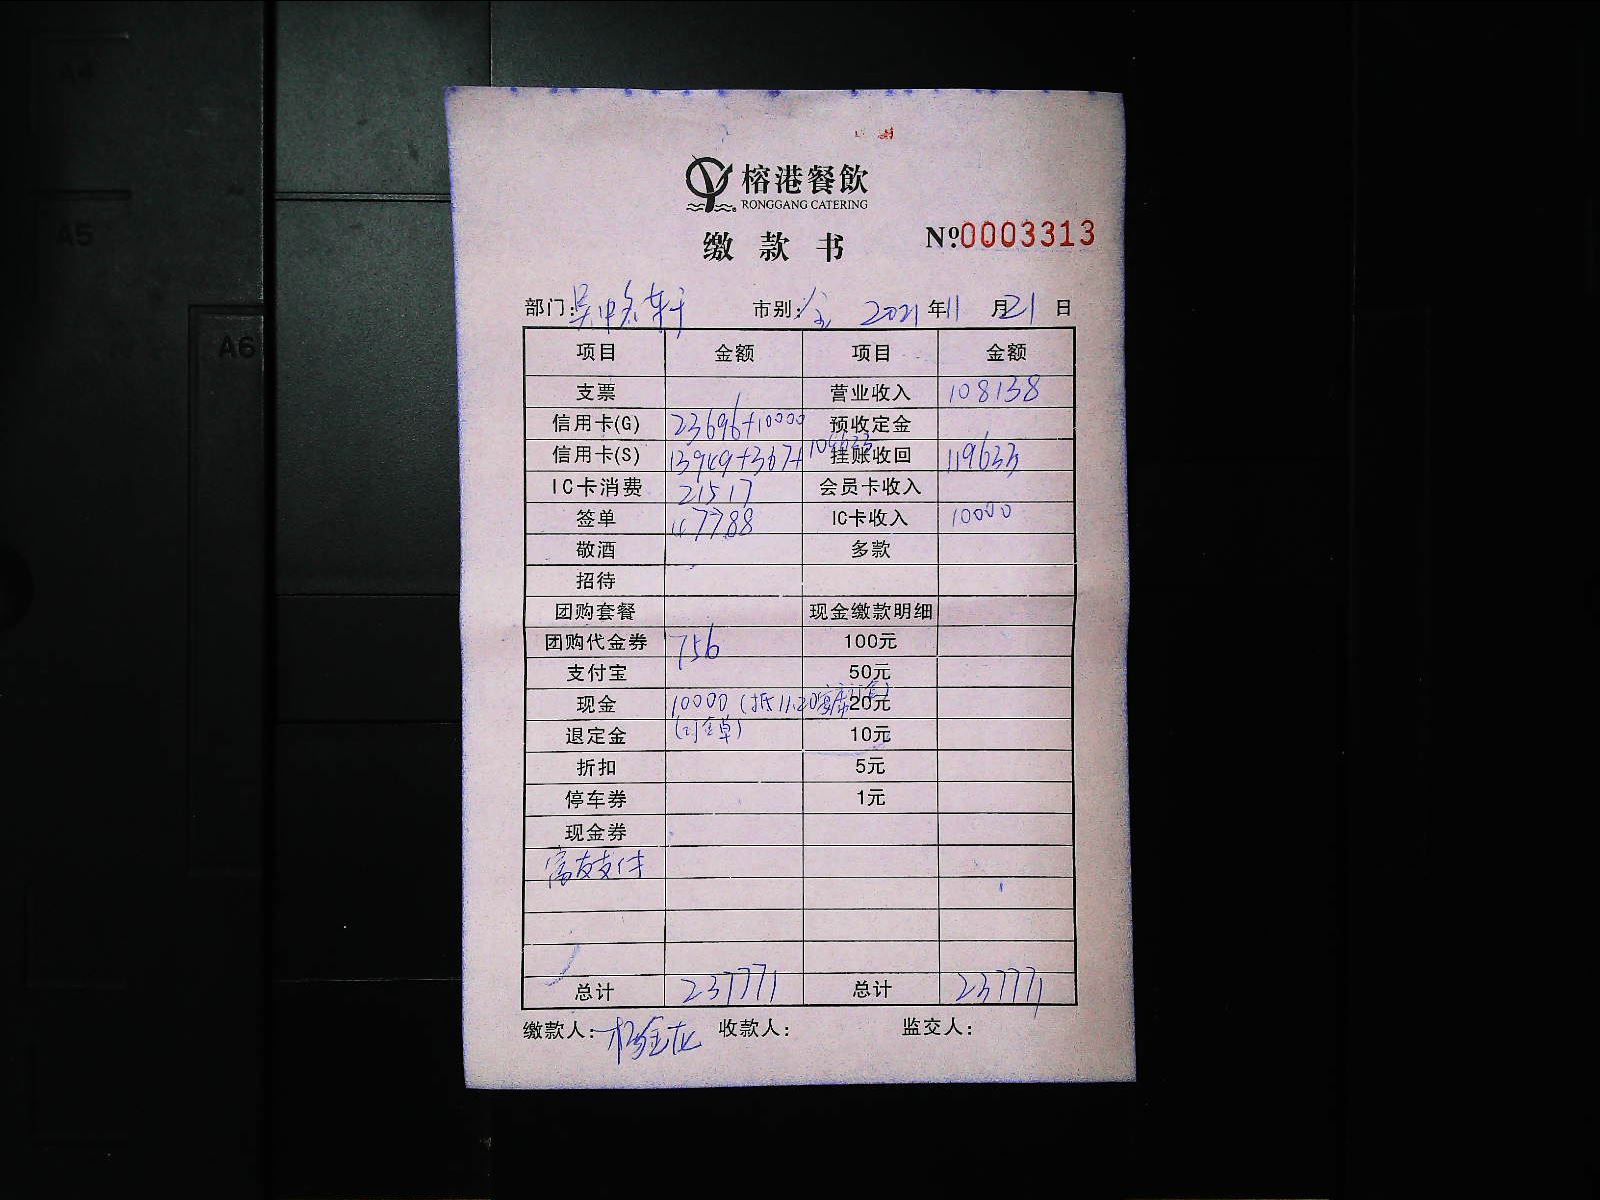 A4
A5
A6
榕港餐飲
RONGGANG CATERING
缴款书 №0003313
部门:吴中名轩 市别:全 2021年11月21日
项目 金额 项目 金额
支票 营业收入 108138
信用卡(G) 23696+10000 预收定金
信用卡(S) 13949+367+109633 挂账收回 119633
IC卡消费 21517 会员卡收入
签单 47788 IC卡收入 10000
敬酒 多款
招待
团购套餐 现金缴款明细
团购代金券 756 100元
支付宝 50元
现金 10000(抵11.20宴席 20元
退定金 10元
折扣 5元
停车券 1元
现金券
富友支付
总计 237771 总计 237771
缴款人:杨金龙 收款人: 监交人: